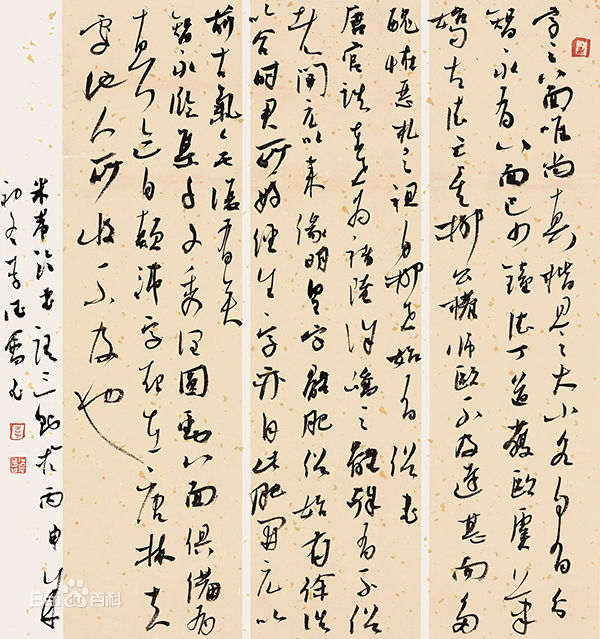 字之八面唯尚真楷見之大小各自有分
智永有八面已少鍾法丁道護歐虞筆
始古法亡矣柳公權師歐不及遠甚而為
醜怪惡札之祖自柳世始有俗書
唐官誥在世為褚陸徐嶠之體殊有不俗
者開元以來緣明皇字體肥俗始有徐浩
以合時君所好經生字亦自此肥開元以
前古氣無復有矣
智永臨集千文秀潤圓勁八面俱備有
真跡自顛沛字起在唐林夫
處他人所收不及也
米芾論書語三則於丙申年
初冬李
Baidu百科